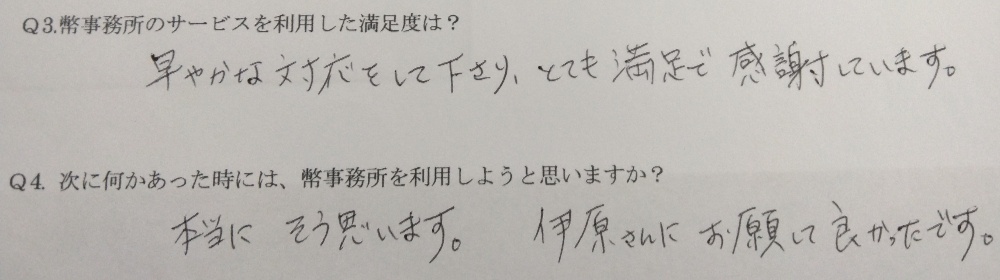 Q3.幣事務所のサービスを利用した満足度は？
早やかな対応をして下さり、とても満足で感謝しています。
Q4. 次に何かあった時には、幣事務所を利用しようと思いますか？
本当にそう思います。 伊原さんにお願して良かったです。